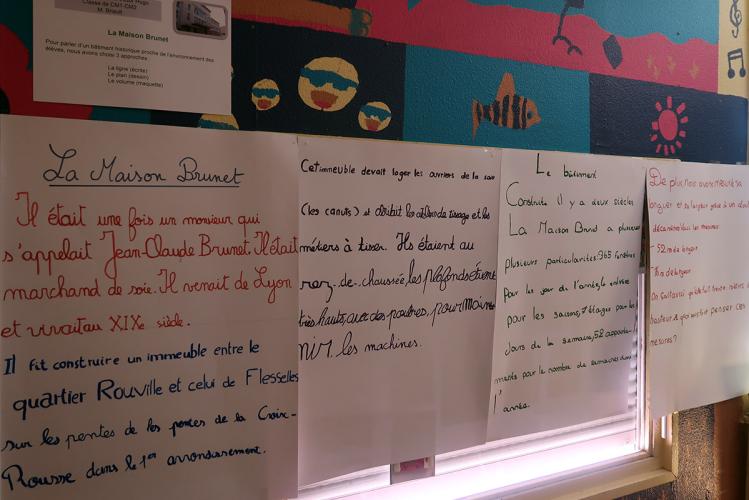 Classe de CM1-CM2
M. Briault
La Maison Brunet
Pour parler d'un bâtiment historique proche de l'environnement des
élèves, nous avons choisi 3 approches
La ligne (écrite)
Le plan (dessin)
Le volume (maquette)
La Maison Brunet
Il était une fois un monsieur qui
s'appelait Jean-Claude Brunet. Il était
marchand de soie. Il venait de Lyon
et vivait au XIXe siècle.
Il fit construire un immeuble entre le
quartier Rouville et celui de Flesselles
sur les pentes de les pentes de la Croix-
Rousse dans le 1er arrondissement.
Cet immeuble devait loger les ouvriers de la soie
(les canuts) et abritait les ateliers de tissage et les
métiers à tisser. Ils étaient au
rez-de-chaussée, les plafonds étaient
très hauts, avec des poutres, pour mainte
nir les machines.
Le bâtiment
Construite il y a deux siècles
La Maison Brunet a plusieurs
plusieurs particularités: 365 fenêtres
pour les jour de l'année, 4 entrées
pour les saisons, 7 étages pour les
jours de la semaine, 52 apparte-
ments pour le nombre de semaines dans
l'année.
De plus nous avons mesuré sa
longueur et sa largeur grâce à un
les mesures:
- 52 m de longueur
de largeur
mesures?